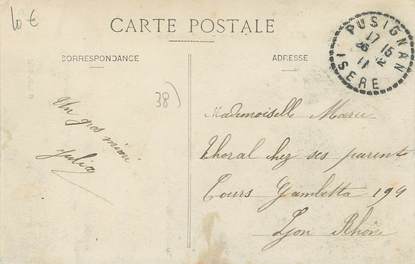 10 €
CARTE POSTALE
CORRESPONDANCE
ADRESSE
PUSIGNAN
17 15
26 12
11
ISERE
38)
Un gros mimi
Julia
Mademoiselle Marie
Thoral chez ses parents
Cours Gambetta 194
Lyon Rhône